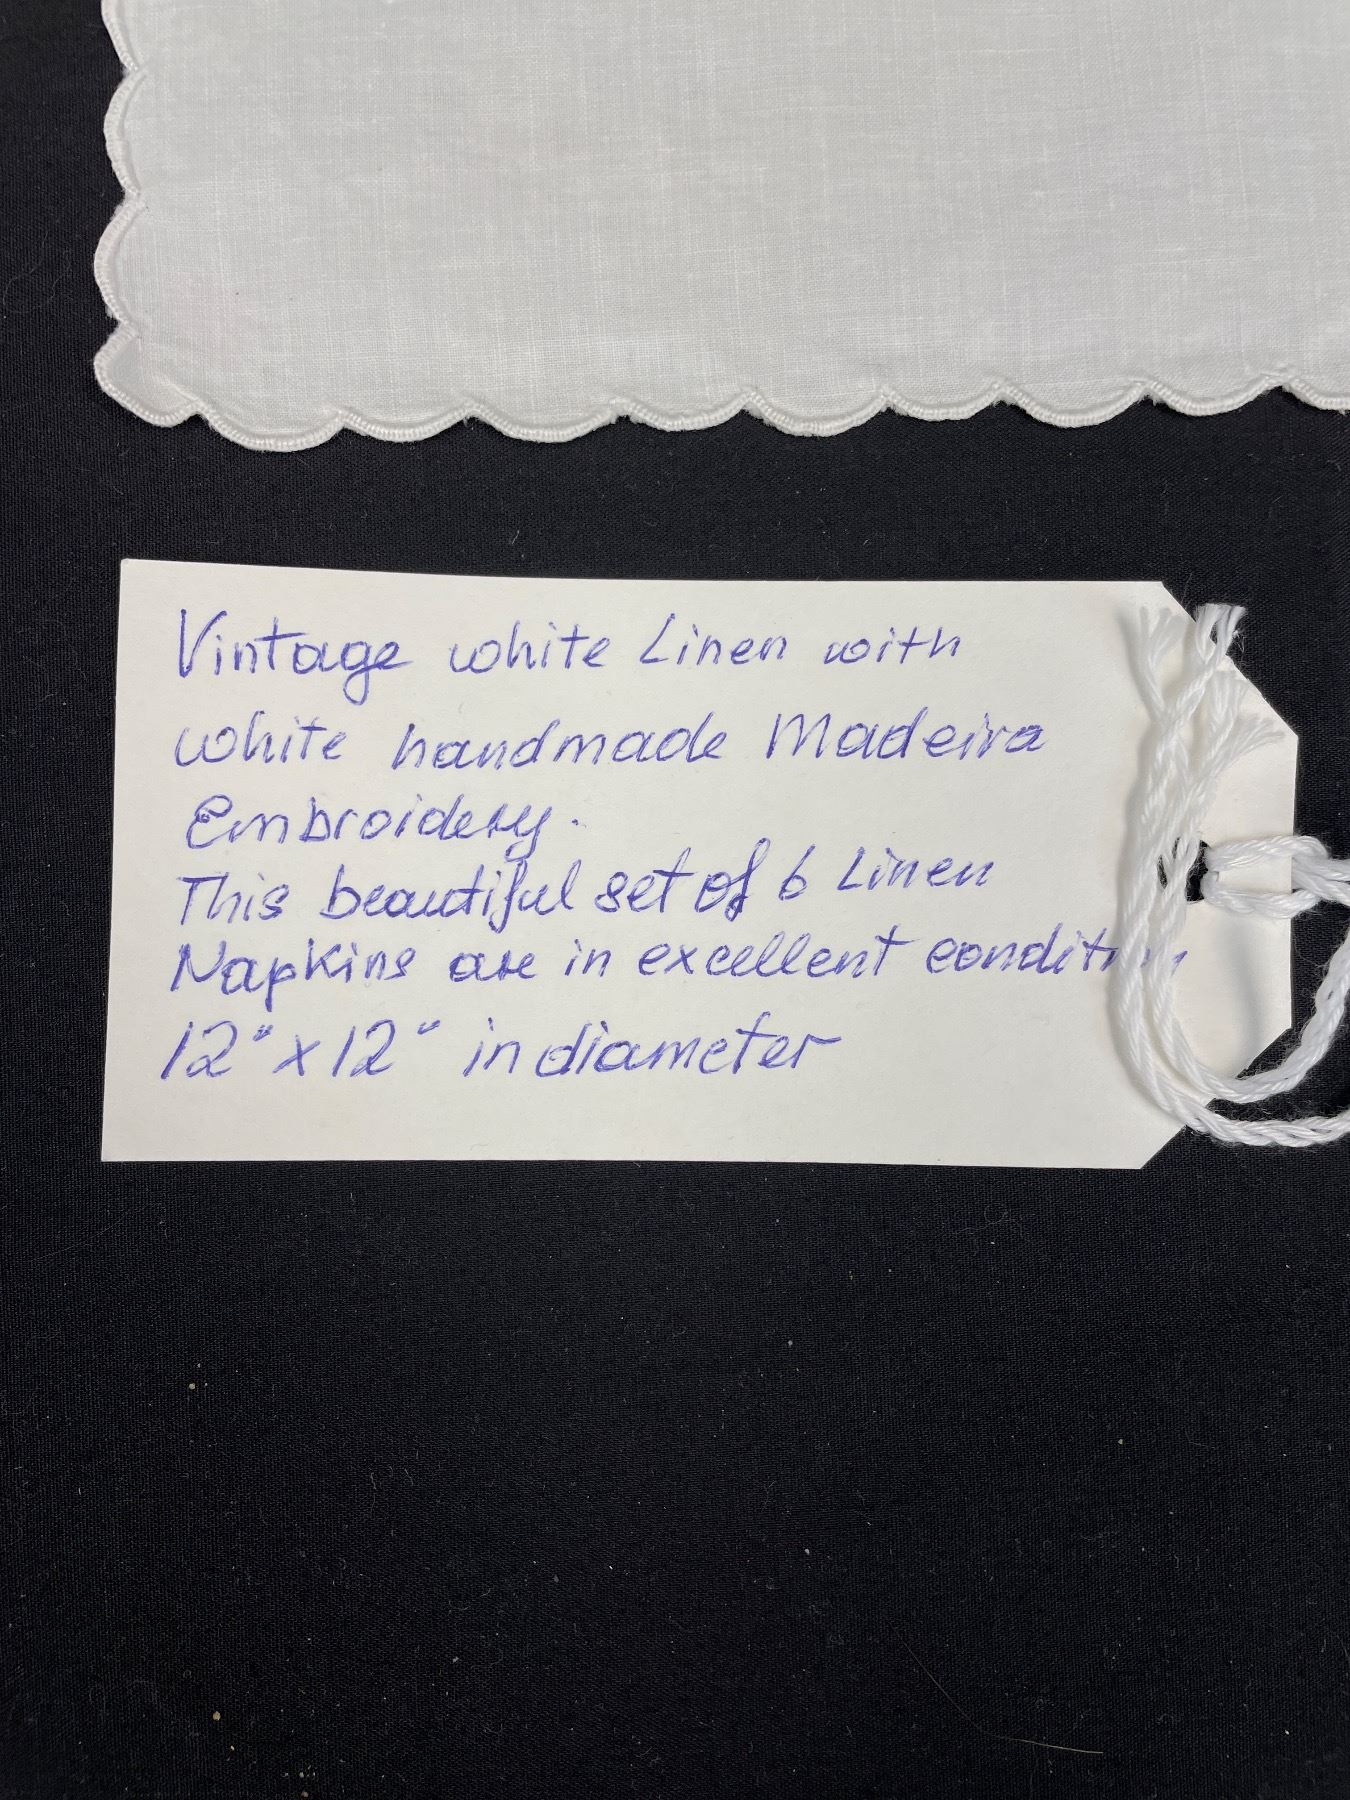 Vintage white Linen with
white handmade Madeira
Embroidery.
This beautiful set of 6 Linen
Napkins are in excellent condition
12" x 12" in diameter